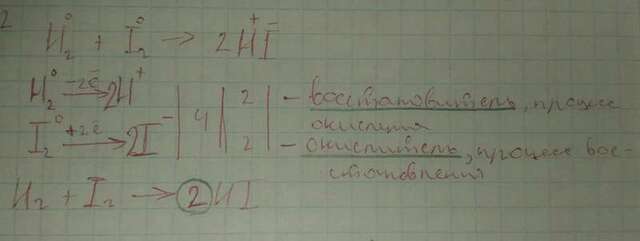 2
H₂⁰ + I₂⁰ → 2H⁺I⁻
H₂⁰ -2ē → 2H⁺ | 4 | 2 - восстановитель, процесс
окисления
I₂⁰ +2ē → 2I⁻ | 2 - окислитель, процесс вос-
становления
H₂ + I₂ → 2HI